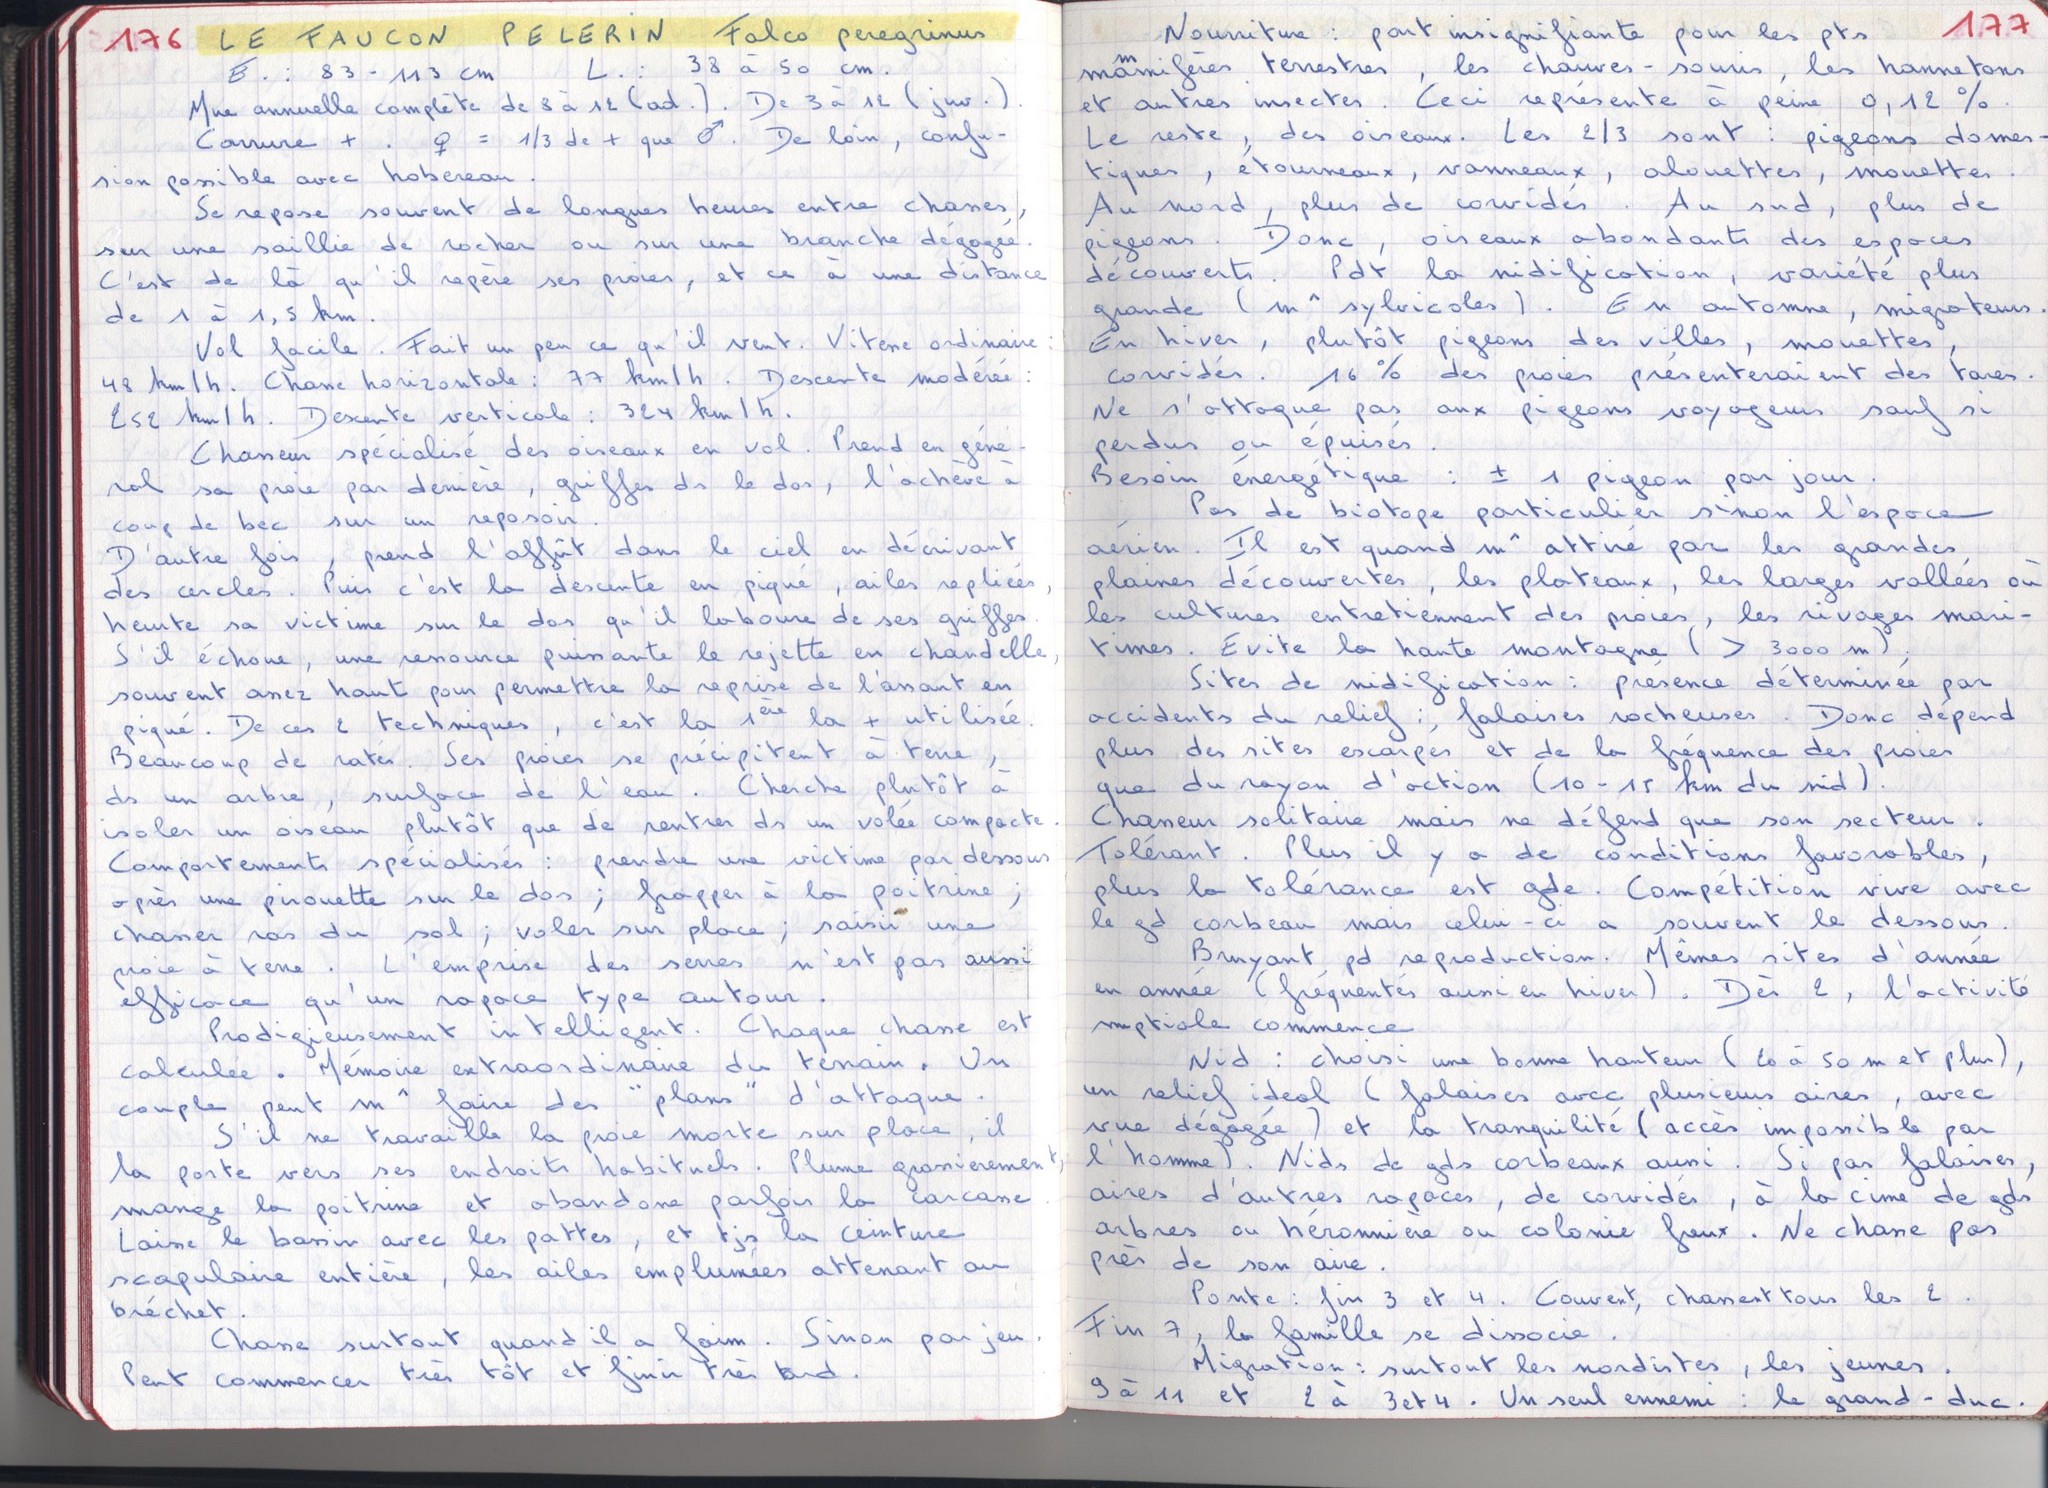 176 LE FAUCON PELERIN Falco peregrinus
E. : 83-113 cm L. : 38 à 50 cm.
Mue annuelle complète de 3 à 12 (ad.). De 3 à 12 (juv.).
Carrure + . ♀ = 1/3 de + que ♂. De loin, confu-
sion possible avec hobereau.
Se repose souvent de longues heures entre chasses,
sur une saillie de rocher ou sur une branche dégagée.
C'est de là qu'il repère ses proies, et ce à une distance
de 1 à 1,5 km.
Vol facile. Fait un peu ce qu'il veut. Vitesse ordinaire :
48 km/h. Chasse horizontale : 77 km/h. Descente modérée :
252 km/h. Descente verticale : 324 km/h.
Chasseur spécialisé des oiseaux en vol. Prend en géné-
ral sa proie par derrière, griffes ds le dos, l'achève à
coup de bec sur un reposoir.
D'autre fois, prend l'affût dans le ciel en décrivant
des cercles. Puis c'est la descente en piqué, ailes repliées,
heurte sa victime sur le dos qu'il laboure de ses griffes.
S'il échoue, une ressource puissante le rejette en chandelle,
souvent assez haut pour permettre la reprise de l'assaut en
piqué. De ces 2 techniques, c'est la 1ère la + utilisée.
Beaucoup de ratés. Ses proies se précipitent à terre,
ds un arbre, surface de l'eau. Cherche plutôt à
isoler un oiseau plutôt que de rentrer ds un volée compacte.
Comportements spécialisés : prendre une victime par dessous
après une pirouette sur le dos ; frapper à la poitrine ;
chasser ras du sol ; voler sur place ; saisir une
proie à terre. L'emprise des serres n'est pas aussi
efficace qu'un rapace type autour.
Prodigieusement intelligent. Chaque chasse est
calculée. Mémoire extraordinaire du terrain. Un
couple peut m^ faire des "plans" d'attaque.
S'il ne travaille la proie morte sur place, il
la porte vers ses endroits habituels. Plume grossièrement,
mange la poitrine et abandone parfois la carcasse.
Laisse le bassin avec les pattes, et tjs la ceinture
scapulaire entière, les ailes emplumées attenant au
bréchet.
Chasse surtout quand il a faim. Sinon par jeu.
Peut commencer très tôt et finir très tard.
Nourriture : part insignifiante pour les pts 177
mammifères terrestres, les chauves-souris, les hannetons
et autres insectes. Ceci représente à peine 0,12 %.
Le reste, des oiseaux. Les 2/3 sont : pigeons domes-
tiques, étourneaux, vanneaux, alouettes, mouettes.
Au nord, plus de corvidés. Au sud, plus de
pigeons. Donc, oiseaux abondants des espaces
découverts. Pdt la nidification, variété plus
grande (m^ sylvicoles). En automne, migrateurs.
En hiver, plutôt pigeons des villes, mouettes,
corvidés. 16 % des proies présenteraient des tares.
Ne s'attaque pas aux pigeons voyageurs sauf si
perdus ou épuisés.
Besoin énergétique : ± 1 pigeon par jour.
Pas de biotope particulier sinon l'espace
aérien. Il est quand m^ attiré par les grandes
plaines découvertes, les plateaux, les larges vallées où
les cultures entretiennent des proies, les rivages mari-
times. Evite la haute montagne (> 3000 m).
Sites de nidification : présence déterminée par
accidents du relief : falaises rocheuses. Donc dépend
plus des sites escarpés et de la fréquence des proies
que du rayon d'action (10-15 km du nid).
Chasseur solitaire mais ne défend que son secteur.
Tolérant. Plus il y a de conditions favorables,
plus la tolérance est gde. Compétition vive avec
le gd corbeau mais celui-ci a souvent le dessous.
Bruyant pd reproduction. Mêmes sites d'année
en année (fréquentés aussi en hiver). Dès 2, l'activité
nuptiale commence
Nid : choisi une bonne hauteur (20 à 50 m et plus),
un relief idéal (falaises avec plusieurs aires, avec
vue dégagée) et la tranquilité (accès impossible par
l'homme). Nids de gds corbeaux aussi. Si pas falaises,
aires d'autres rapaces, de corvidés, à la cime de gds
arbres ou héronnière ou colonie freux. Ne chasse pas
près de son aire.
Ponte : fin 3 et 4. Couvent, chassent tous les 2.
Fin 7, la famille se dissocie.
Migration : surtout les nordistes, les jeunes.
9 à 11 et 2 à 3 et 4. Un seul ennemi : le grand-duc.